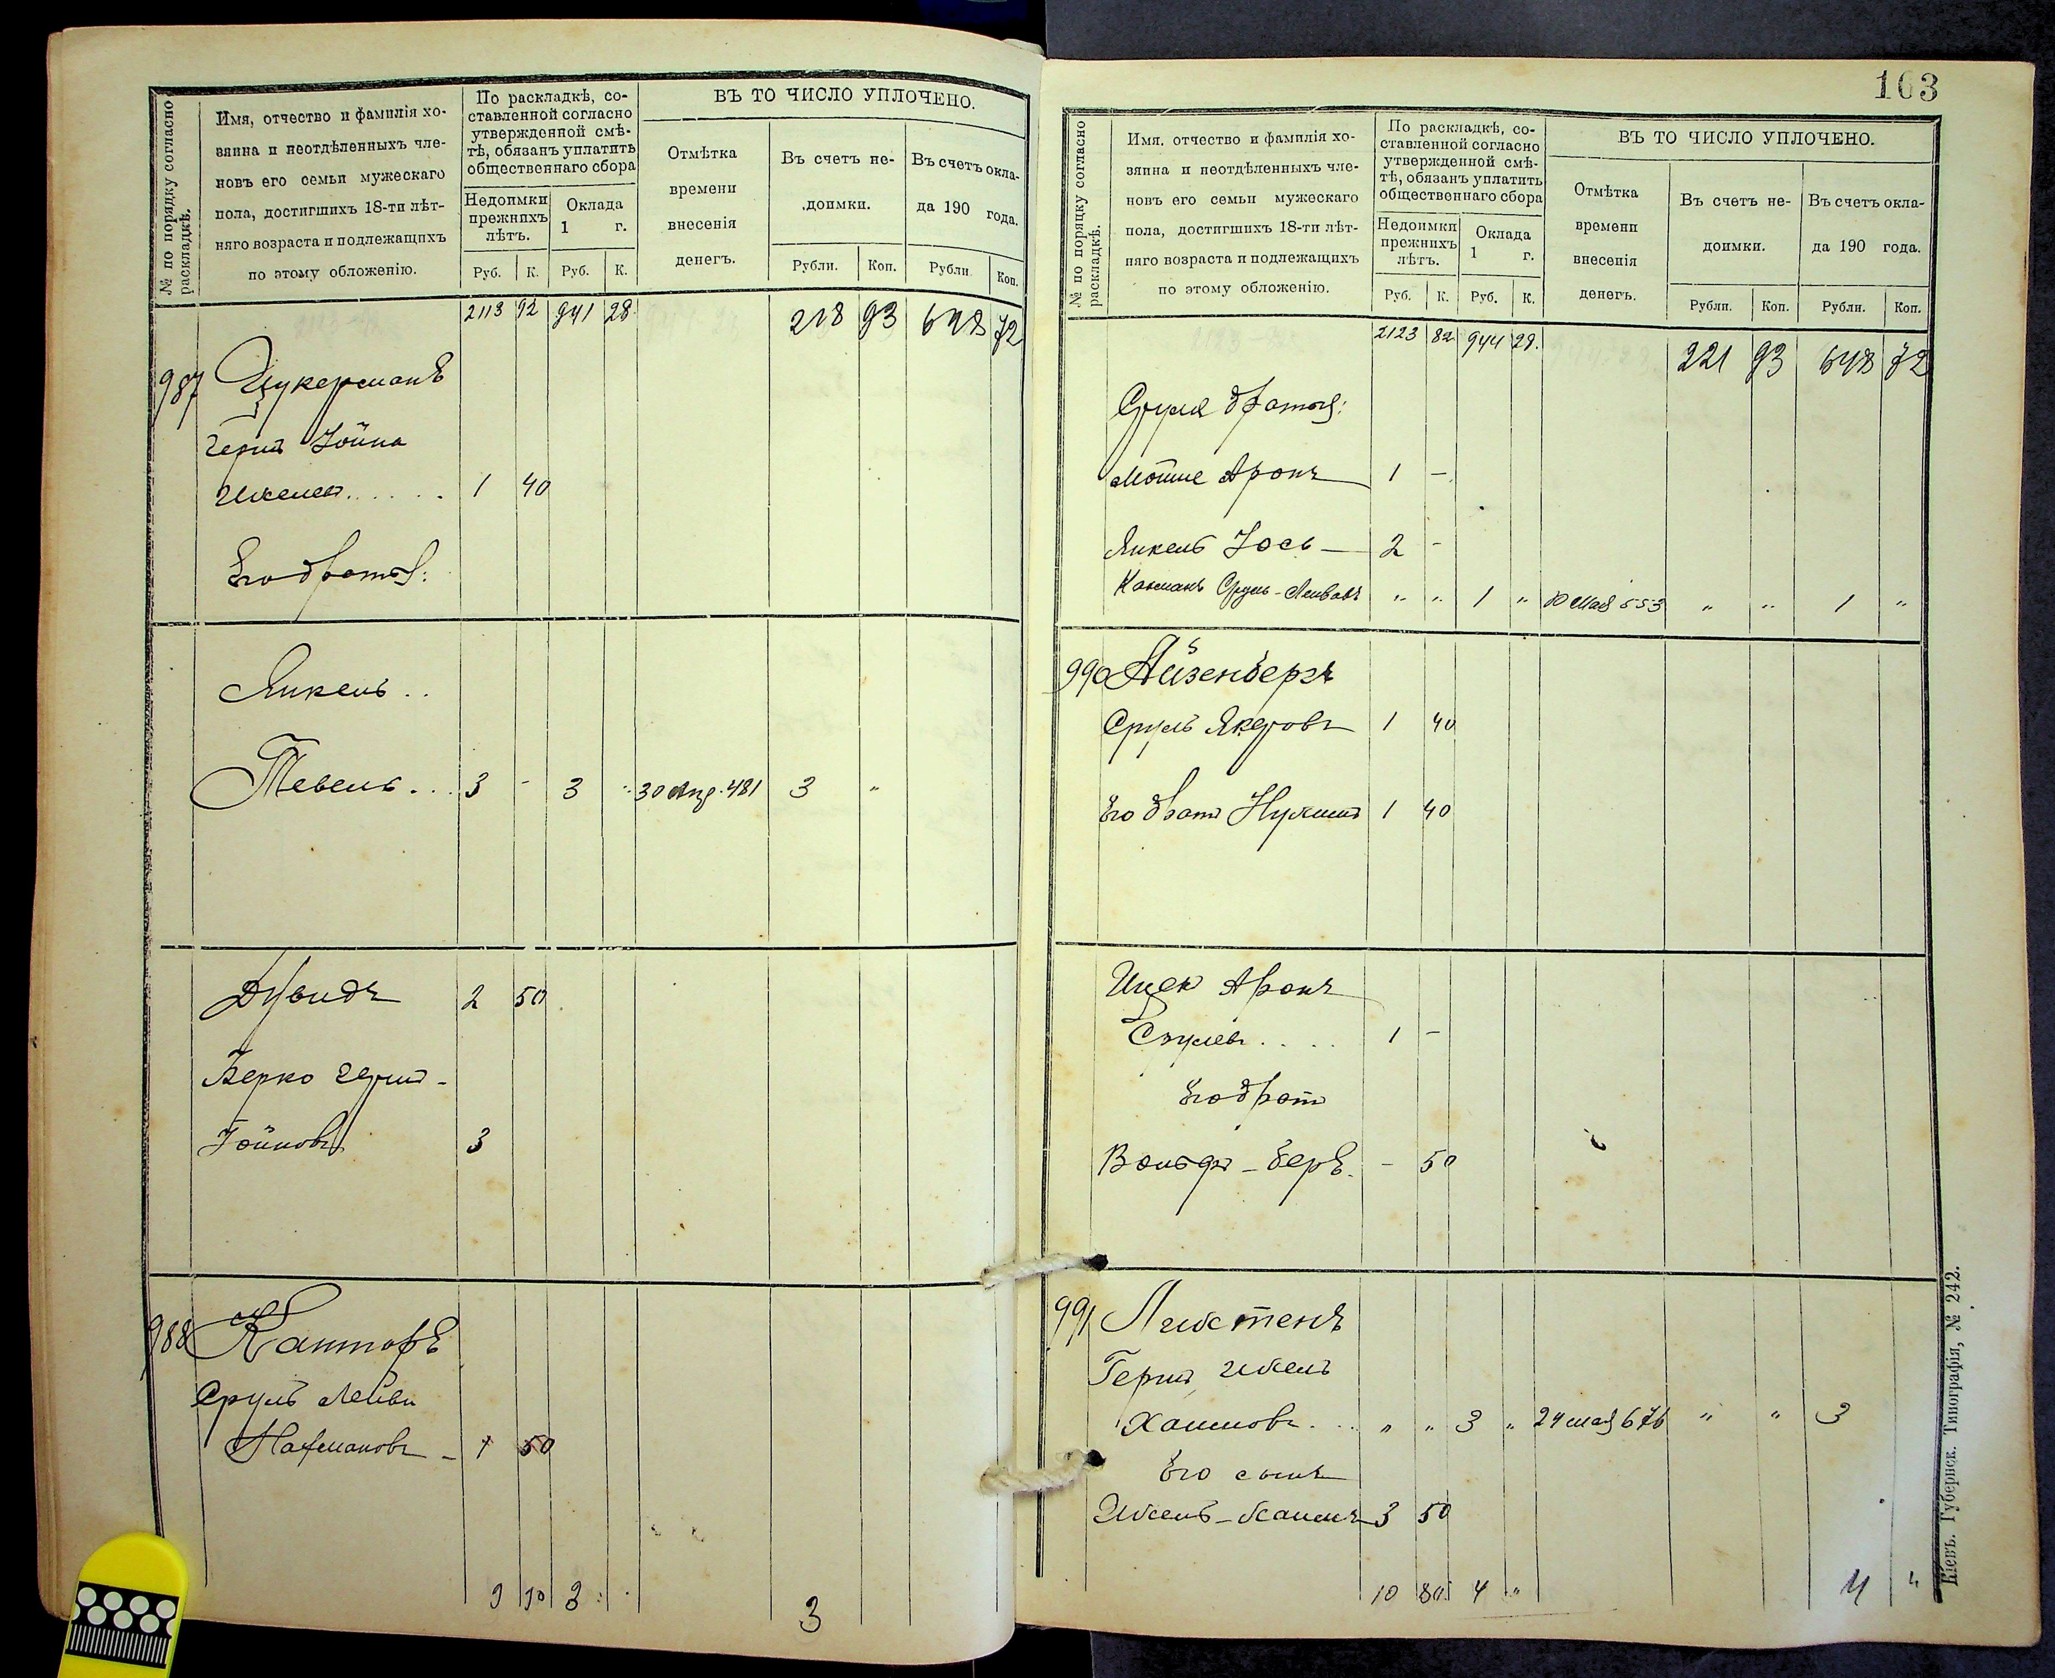 № по порядку согласно раскладкѣ.
Имя, отчество и фамилія хо-
зяина и неотдѣленныхъ чле-
новъ его семьи мужескаго
пола, достигшихъ 18-ти лѣт-
няго возраста и подлежащихъ
по этому обложенію.
По раскладкѣ, со-
ставленной согласно
утвержденной смѣ-
тѣ, обязанъ уплатить
общественнаго сбора
Недоимки
прежнихъ
лѣтъ.
Оклада
1 г.
Руб. К. Руб. К.
ВЪ ТО ЧИСЛО УПЛОЧЕНО.
Отмѣтка
времени
внесенія
денегъ.
Въ счетъ не-
доимки.
Въ счетъ окла-
да 190 года.
Рубли. Коп. Рубли Коп.
2113 92 941 28 218 93 648 72
987 Цукерманъ
Гершъ Іойна
Икелев..... 1 40
Его братья:
Янкель..
Тевель... 3 - 3 " 30 Апр. 481 3 "
Дувидъ 2 50
Берко Гершъ-
Іойновъ 3
988 Канторъ
Сруль Лейви
Нахмановъ - 1 50
9 90 3 3
103
№ по порядку согласно раскладкѣ.
Имя, отчество и фамилія хо-
зяина и неотдѣленныхъ чле-
новъ его семьи мужескаго
пола, достигшихъ 18-ти лѣт-
няго возраста и подлежащихъ
по этому обложенію.
По раскладкѣ, со-
ставленной согласно
утвержденной смѣ-
тѣ, обязанъ уплатить
общественнаго сбора
Недоимки
прежнихъ
лѣтъ.
Оклада
1 г.
Руб. К. Руб. К.
ВЪ ТО ЧИСЛО УПЛОЧЕНО.
Отмѣтка
времени
внесенія
денегъ.
Въ счетъ не-
доимки.
Въ счетъ окла-
да 190 года.
Рубли. Коп. Рубли. Коп.
2123 82 944 28. 221 93 648 72
Сруля братья:
Мошие Аронъ 1 -
Янкель Іось - 2 -
Сруль-Лейбовъ " " 1 " 10 Мая 553 " " 1 "
990 Айзенбергъ
Сруль 1 40
Его братъ Нухимъ 1 40
Ицек Аронъ
Срулевъ.... 1 -
Его братъ
Вольфъ-Беръ. - 50
991
Гершъ Икель
Хаимовъ... " " 3 " 24 мая 676 " " 3
Его сынъ
Икель-Хаимъ 3 50
10 80 4 " 4 "
Кіевъ. Губернск. Типографія, № 242.